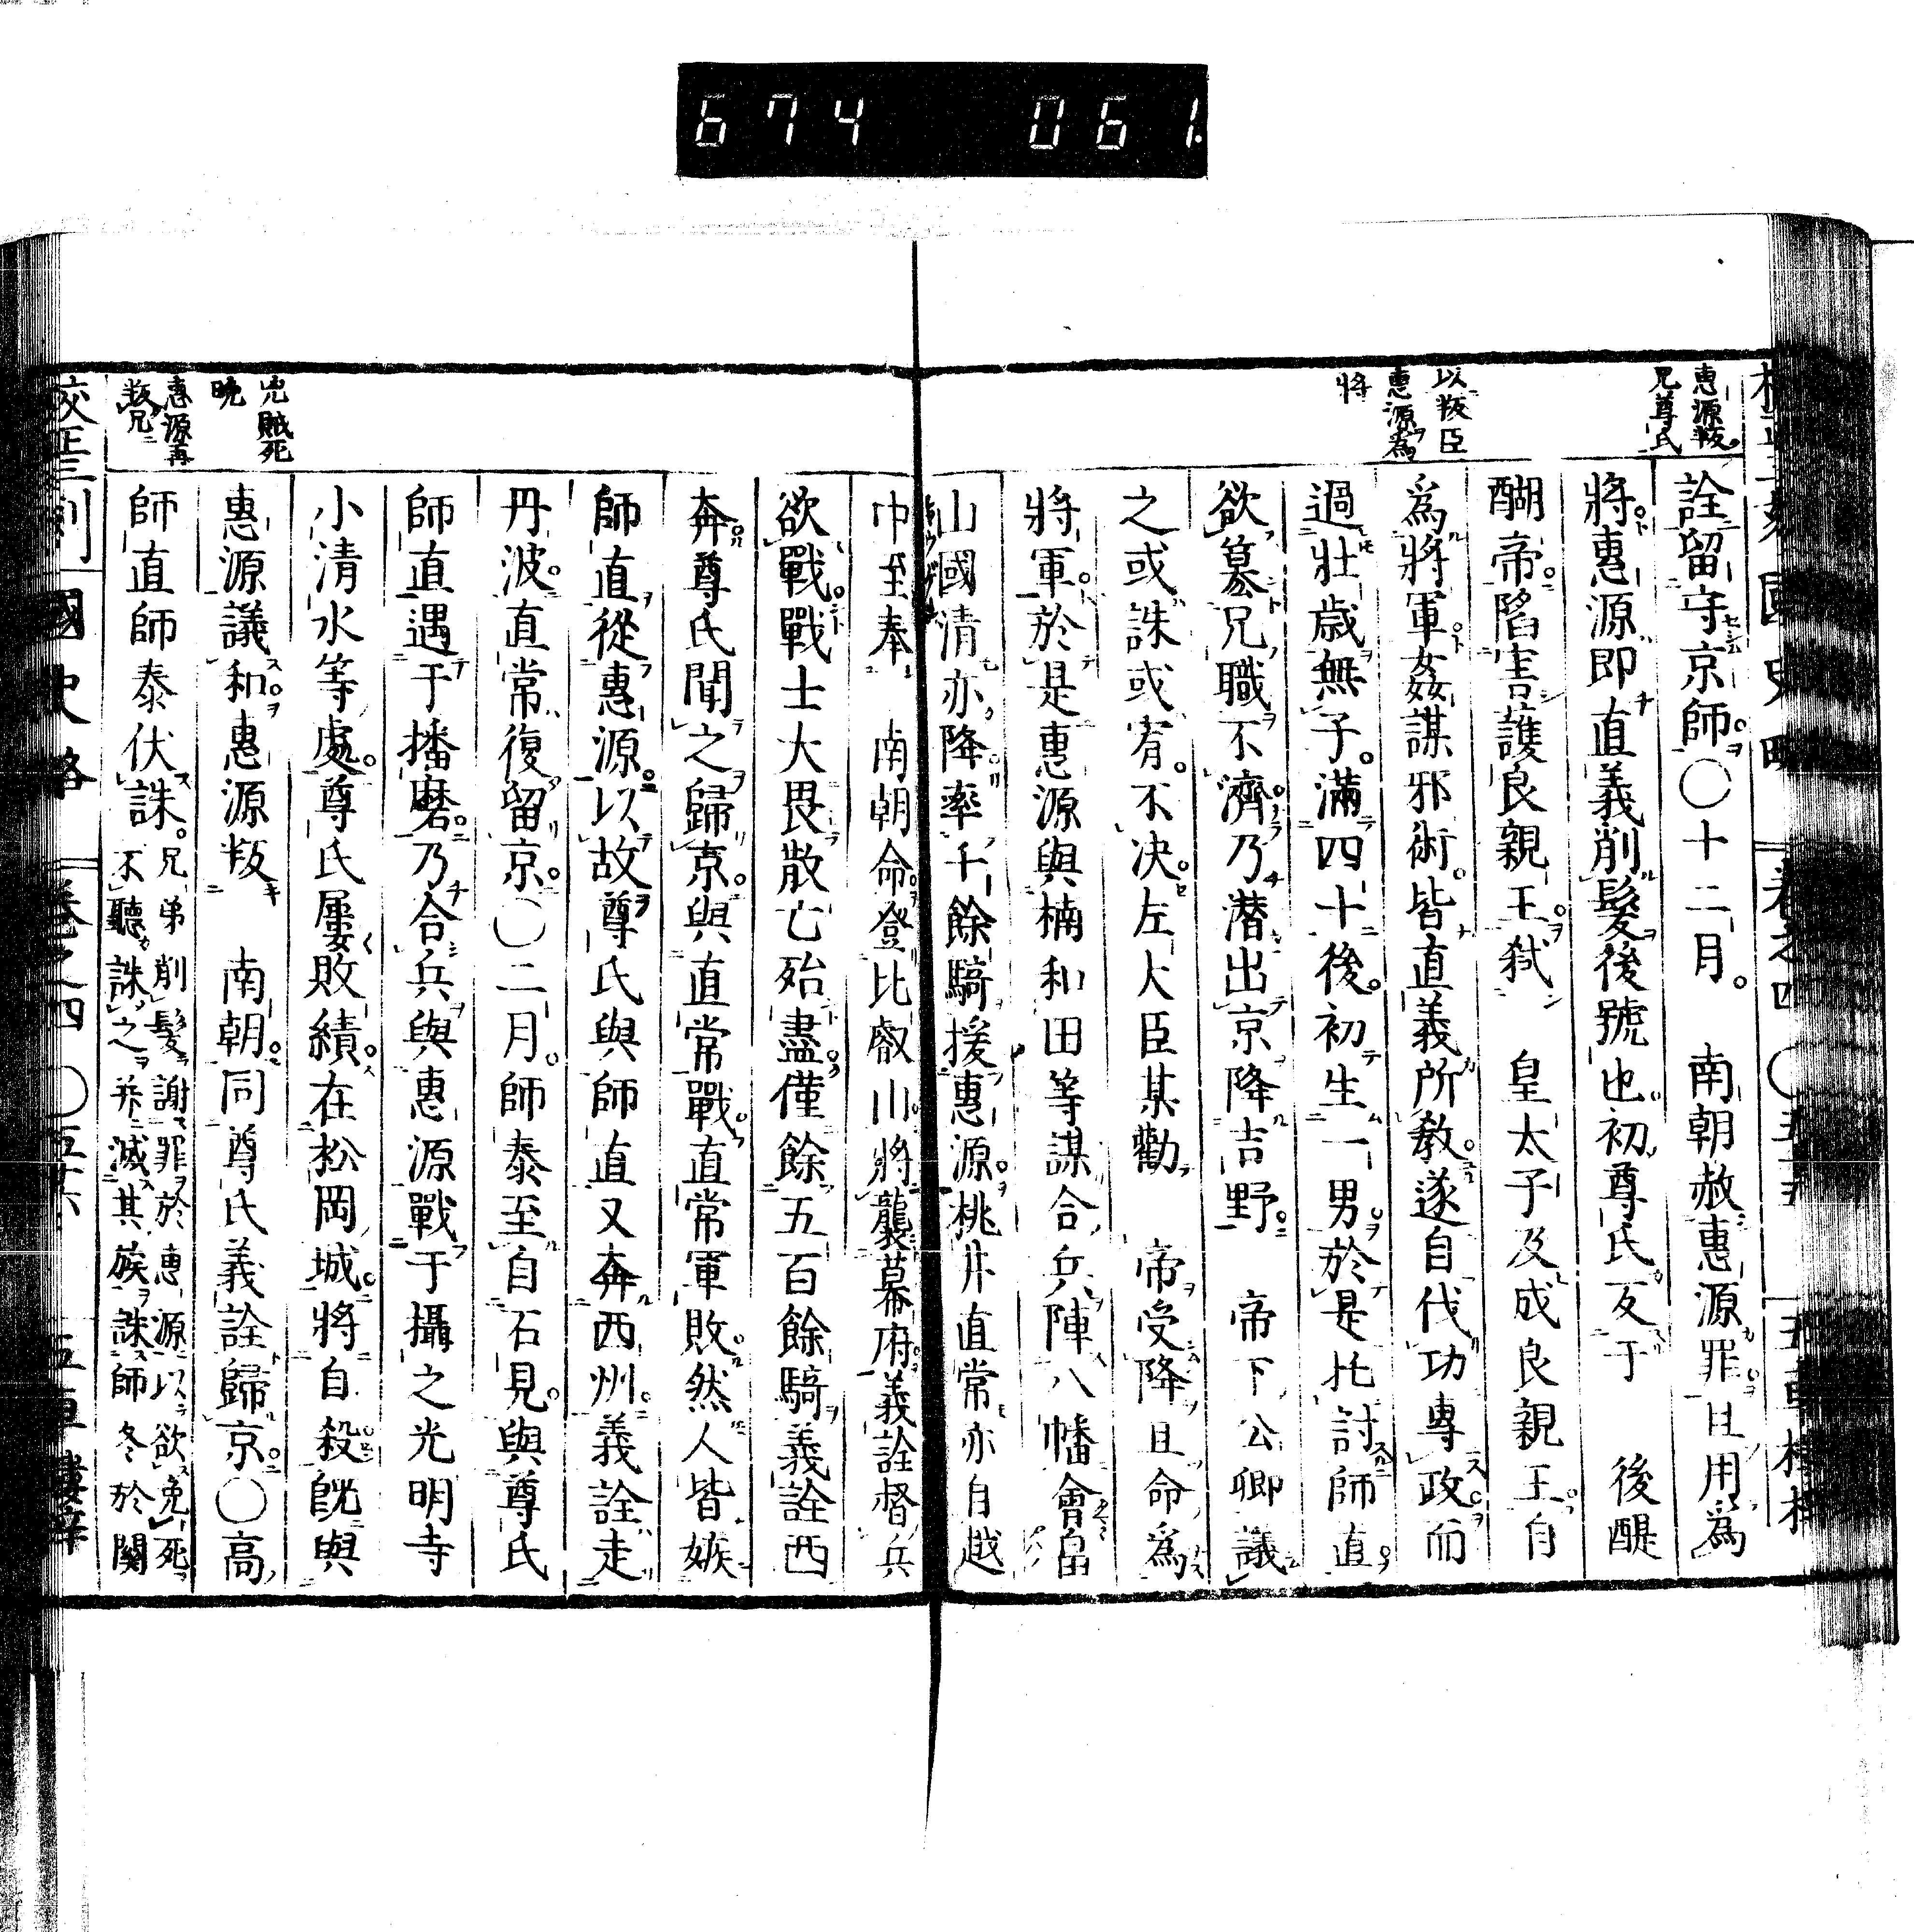 674 061
惠源叛
兄尊氏
以叛臣
惠源為
將
詮留守京師○十二月南朝赦惠源罪且用爲
將惠源即直義削髮後號也初尊氏反于後醍
醐帝陷害護良親王弑皇太子及成良親王自
爲將軍姦謀邪術皆直義所教遂自伐功專政而
過壯歲無子滿四十後初生一男於是托討師直
欲篡兄職不濟乃潛出京降吉野帝下公卿議
之或誅或宥不決左大臣某勸帝受降且命爲
將軍於是惠源與楠和田等謀合兵陣八幡會畠
山國清亦降率千餘騎援惠源桃井直常亦自越
中至奉南朝命登比叡山將襲幕府義詮督兵
欲戰戰士大畏散亡殆盡僅餘五百餘騎義詮西
奔尊氏聞之歸京與直常戰直常軍敗然人皆嫉
師直從惠源以故尊氏與師直又奔西州義詮走
丹波直常復留京○二月師泰至自石見與尊氏
師直遇于播磨乃合兵與惠源戰于攝之光明寺
小清水等處尊氏屢敗績在松岡城將自殺旣與
惠源議和惠源叛南朝同尊氏義詮歸京○高
師直師泰伏誅
兄弟削髮謝罪於惠源以欲免死
不聽誅之并滅其族誅師冬於關
兇賊死
晚
惠源再
叛兄
國史略 卷之四 ○五十六 五車樓梓